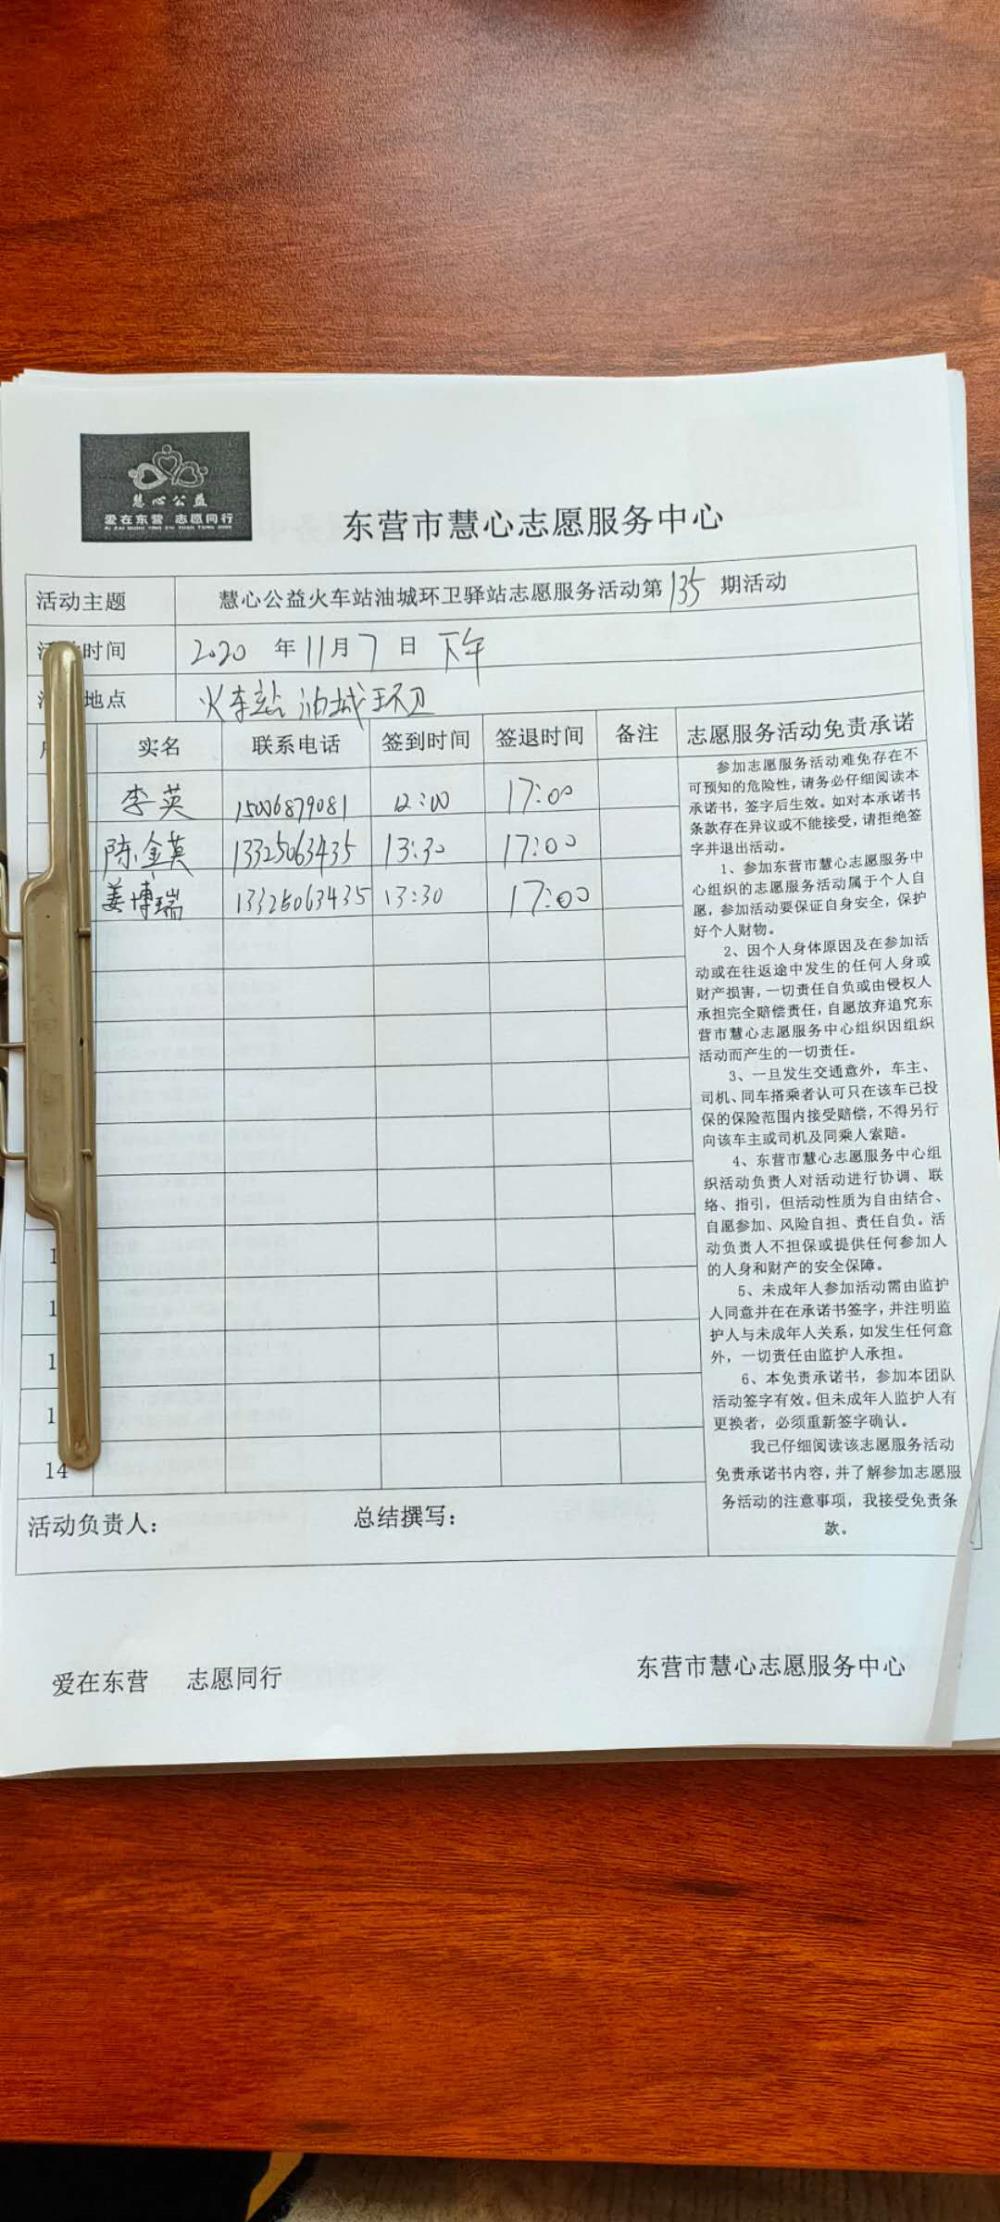 慧心公益
爱在东营 志愿同行
东营市慧心志愿服务中心
活动主题 慧心公益火车站油城环卫驿站志愿服务活动第135期活动
时间 2020年11月7日 下午
地点 火车站油城环卫
实名 联系电话 签到时间 签退时间 备注 志愿服务活动免责承诺
李英 15006879081 12:00 17:00
陈金英 13325063435 13:30 17:00
姜博瑞 13325063435 13:30 17:00
参加志愿服务活动难免存在不
可预知的危险性，请务必仔细阅读本
承诺书，签字后生效。如对本承诺书
条款存在异议或不能接受，请拒绝签
字并退出活动。
1、参加东营市慧心志愿服务中
心组织的志愿服务活动属于个人自
愿，参加活动要保证自身安全，保护
好个人财物。
2、因个人身体原因及在参加活
动或在往返途中发生的任何人身或
财产损害，一切责任自负或由侵权人
承担完全赔偿责任，自愿放弃追究东
营市慧心志愿服务中心组织因组织
活动而产生的一切责任。
3、一旦发生交通意外，车主、
司机、同车搭乘者认可只在该车已投
保的保险范围内接受赔偿，不得另行
向该车主或司机及同乘人索赔。
4、东营市慧心志愿服务中心组
织活动负责人对活动进行协调、联
络、指引，但活动性质为自由结合、
自愿参加、风险自担、责任自负。活
动负责人不担保或提供任何参加人
的人身和财产的安全保障。
5、未成年人参加活动需由监护
人同意并在在承诺书签字，并注明监
护人与未成年人关系，如发生任何意
外，一切责任由监护人承担。
6、本免责承诺书，参加本团队
活动签字有效。但未成年人监护人有
更换者，必须重新签字确认。
我已仔细阅读该志愿服务活动
免责承诺书内容，并了解参加志愿服
务活动的注意事项，我接受免责条
款。
1
1
1
1
14
活动负责人： 总结撰写：
爱在东营 志愿同行 东营市慧心志愿服务中心